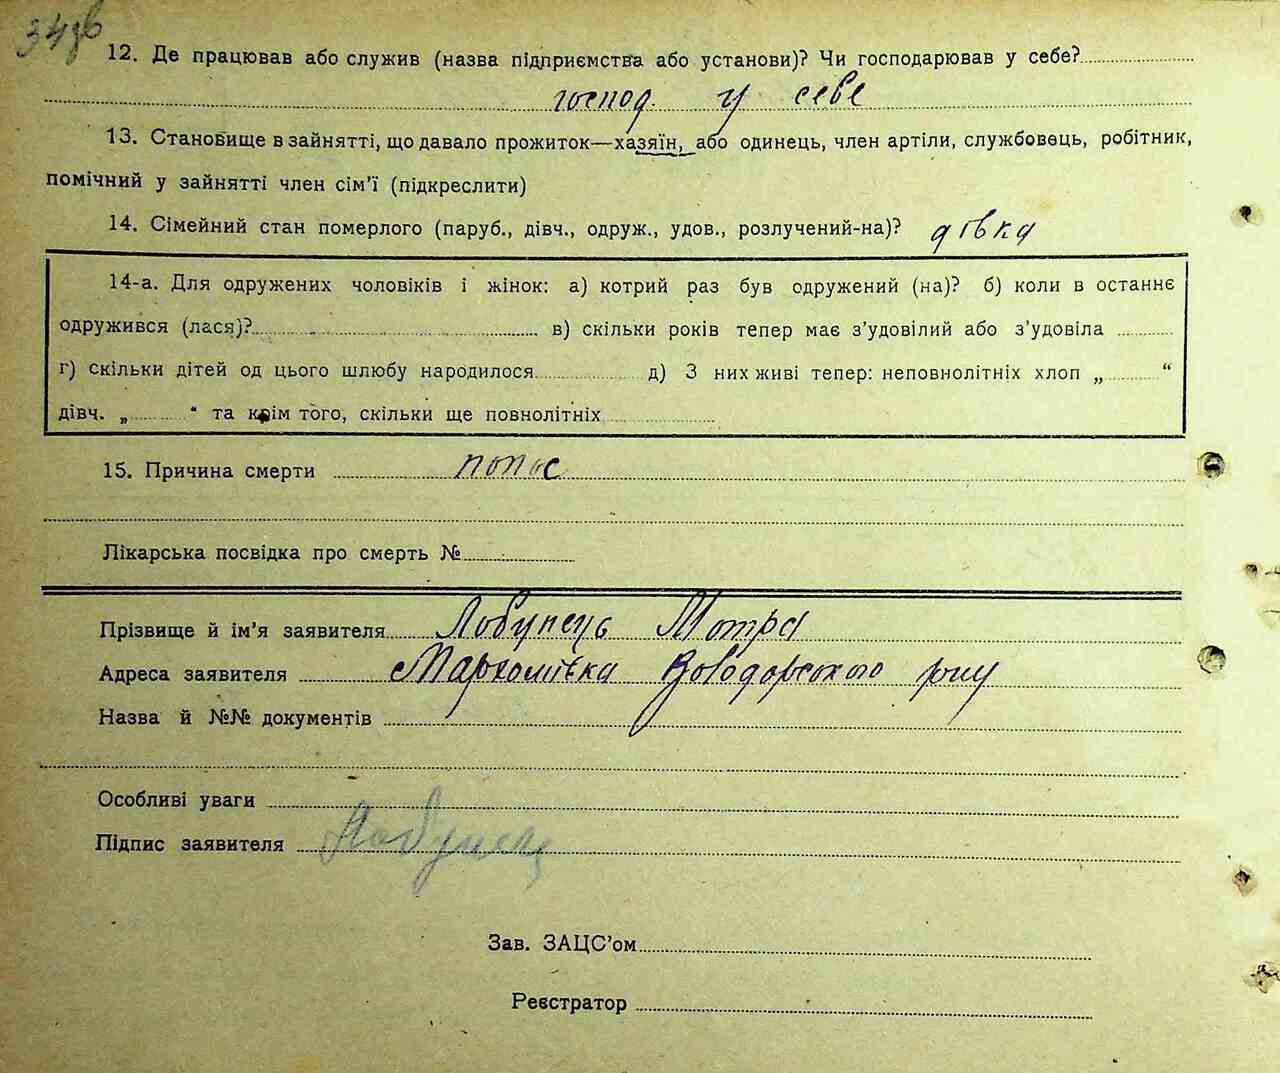 34зв
12. Де працював або служив (назва підприємства або установи)? Чи господарював у себе?
господ. у себе
13. Становище в зайнятті, що давало прожиток—хазяїн, або одинець, член артіли, службовець, робітник,
помічний у зайнятті член сім'ї (підкреслити)
14. Сімейний стан померлого (паруб., дівч., одруж., удов., розлучений-на)? дівка
14-а. Для одружених чоловіків і жінок: а) котрий раз був одружений (на)? б) коли в останнє
одружився (лася)? в) скільки років тепер має з'удовілий або з'удовіла
г) скільки дітей од цього шлюбу народилося д) З них живі тепер: неповнолітніх хлоп „ “
дівч. „ “ та крім того, скільки ще повнолітніх
15. Причина смерти понос
Лікарська посвідка про смерть №
Прізвище й ім'я заявителя Лобунець Мотря
Адреса заявителя Володарського р-ну
Назва й №№ документів
Особливі уваги
Підпис заявителя Лобунец
Зав. ЗАЦС'ом
Реєстратор